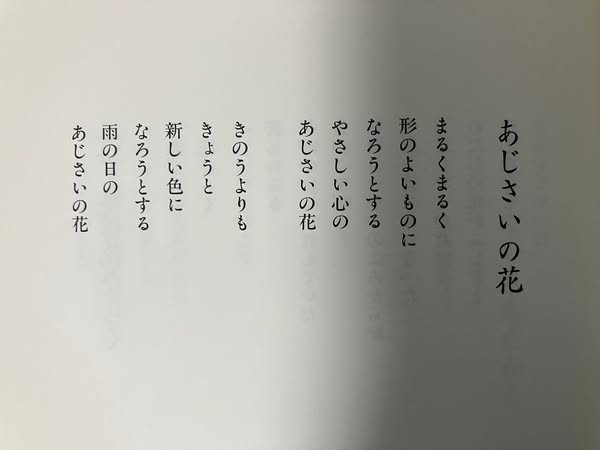 あじさいの花
まるくまるく
形のよいものに
なろうとする
やさしい心の
あじさいの花
きのうよりも
きょうと
新しい色に
なろうとする
雨の日の
あじさいの花